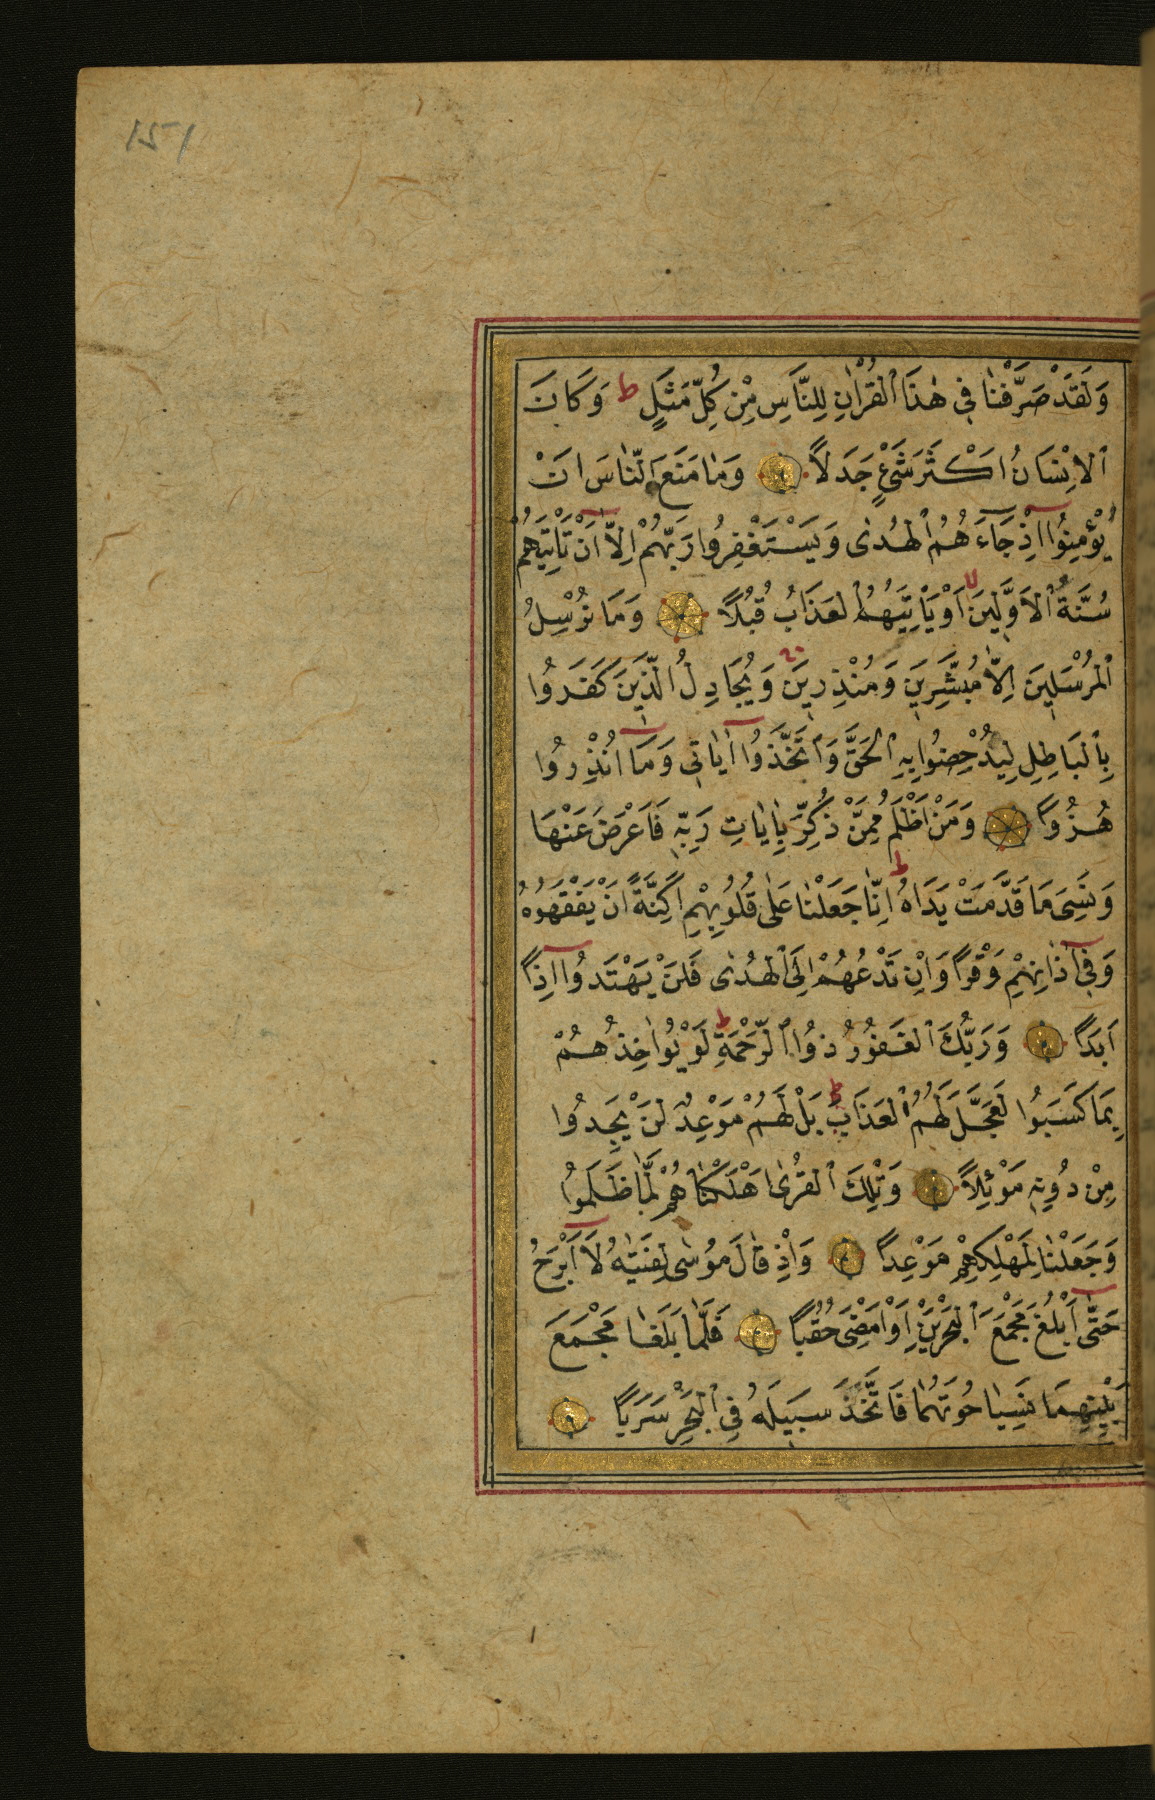 151
وَلَقَدْ صَرَّفْنَا فِي هٰذَا ٱلْقُرْاٰنِ لِلنَّاسِ مِنْ كُلِّ مَثَلٍ ط وَكَانَ
ٱلْاِنْسَانُ اَكْثَرَ شَيْءٍ جَدَلًا وَمَا مَنَعَ ٱلنَّاسَ اَنْ
يُؤْمِنُوا اِذْ جَاءَهُمُ ٱلْهُدٰى وَيَسْتَغْفِرُوا رَبَّهُمْ اِلَّا اَنْ تَأْتِيَهُمْ
سُنَّةُ ٱلْاَوَّلِينَ لا اَوْ يَأْتِيَهُمُ ٱلْعَذَابُ قُبُلًا وَمَا نُرْسِلُ
ٱلْمُرْسَلِينَ اِلَّا مُبَشِّرِينَ وَمُنْذِرِينَ وَيُجَادِلُ الَّذِينَ كَفَرُوا
بِٱلْبَاطِلِ لِيُدْحِضُوا بِهِ ٱلْحَقَّ وَٱتَّخَذُوا اٰيَاتِي وَمَا اُنْذِرُوا
هُزُوًا وَمَنْ اَظْلَمُ مِمَّنْ ذُكِّرَ بِاٰيَاتِ رَبِّهٖ فَاَعْرَضَ عَنْهَا
وَنَسِيَ مَا قَدَّمَتْ يَدَاهُ ط اِنَّا جَعَلْنَا عَلٰى قُلُوبِهِمْ اَكِنَّةً اَنْ يَفْقَهُوهُ
وَفِي اٰذَانِهِمْ وَقْرًا وَاِنْ تَدْعُهُمْ اِلَى ٱلْهُدٰى فَلَنْ يَهْتَدُوا اِذًا
اَبَدًا وَرَبُّكَ ٱلْغَفُورُ ذُوا ٱلرَّحْمَةِ ط لَوْ يُؤَاخِذُهُمْ
بِمَا كَسَبُوا لَعَجَّلَ لَهُمُ ٱلْعَذَابَ ط بَلْ لَهُمْ مَوْعِدٌ لَنْ يَجِدُوا
مِنْ دُونِهٖ مَوْئِلًا وَتِلْكَ ٱلْقُرٰى اَهْلَكْنَاهُمْ لَمَّا ظَلَمُوا
وَجَعَلْنَا لِمَهْلِكِهِمْ مَوْعِدًا وَاِذْ قَالَ مُوسٰى لِفَتٰيهُ لَا اَبْرَحُ
حَتّٰى اَبْلُغَ مَجْمَعَ ٱلْبَحْرَيْنِ اَوْ اَمْضِيَ حُقُبًا فَلَمَّا بَلَغَا مَجْمَعَ
بَيْنِهِمَا نَسِيَا حُوتَهُمَا فَاتَّخَذَ سَبِيلَهُ فِي ٱلْبَحْرِ سَرَبًا